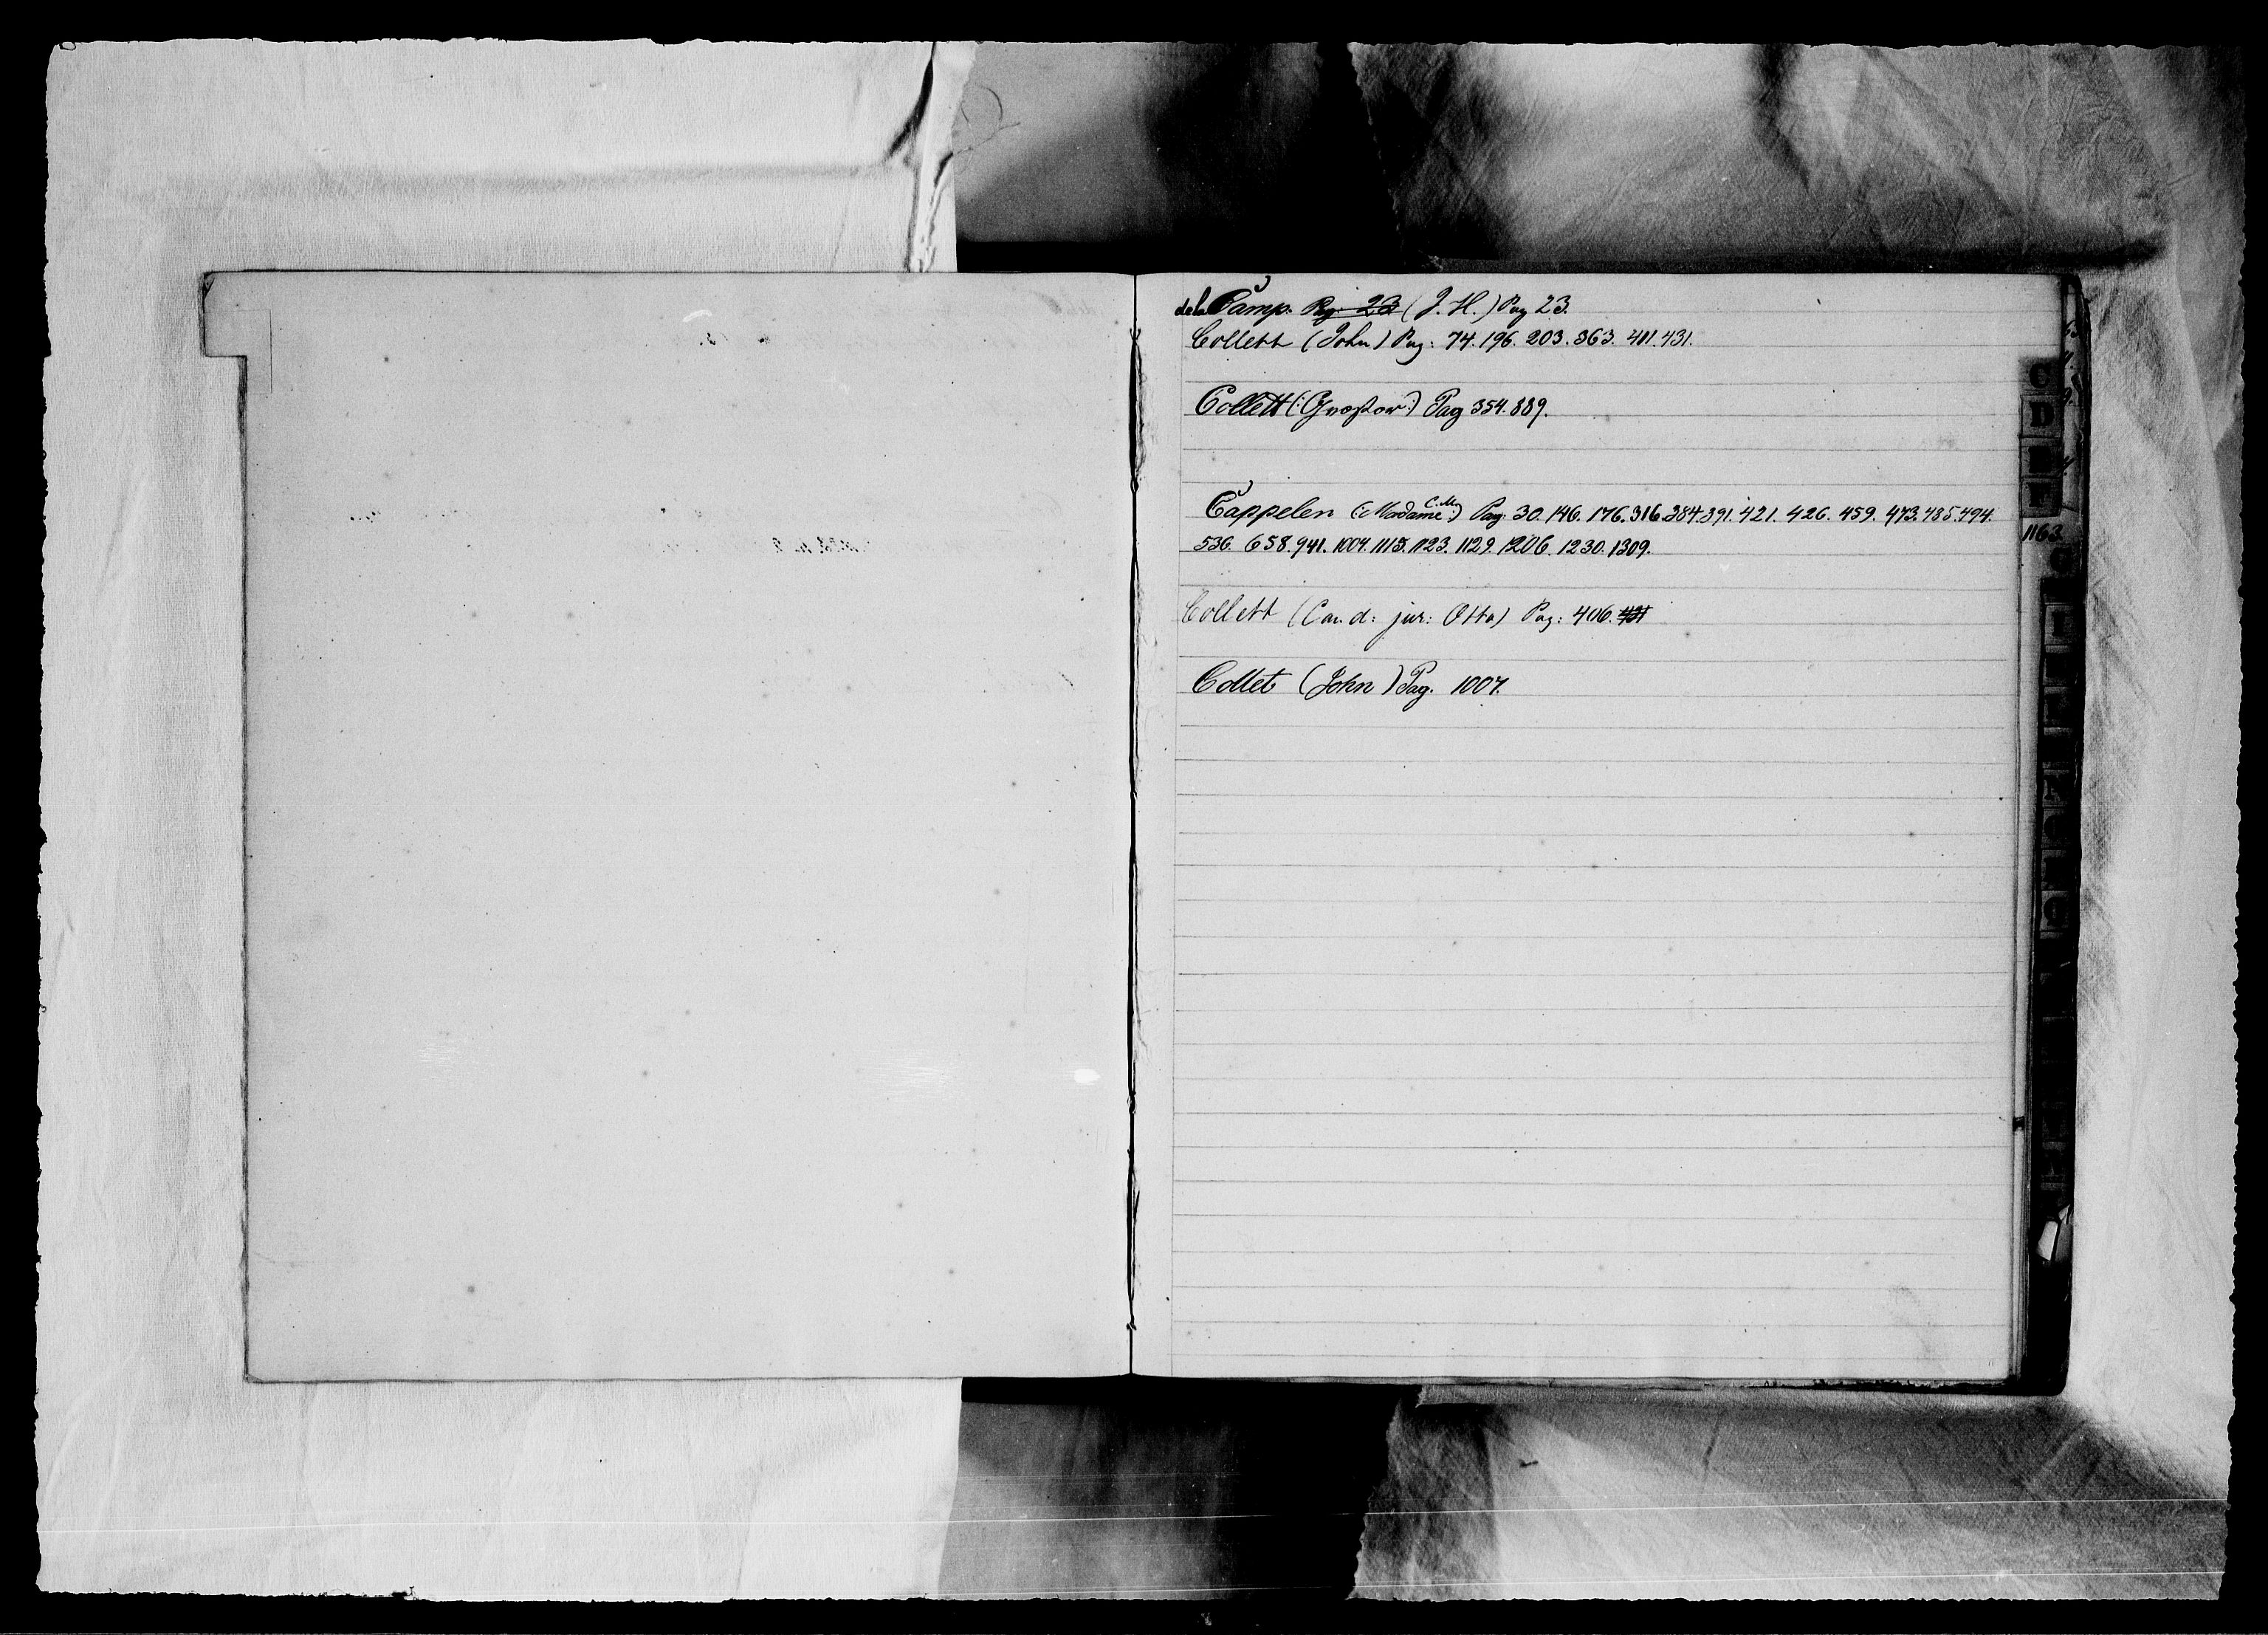 de la Camp. Pag. 23 (J. H.) Pag 23.
Collett (John) Pag: 74. 196. 203. 363. 401. 431.
Collett (: :) Pag 354. 889.
Cappelen (: Madame C. M. :) Pag. 30. 146. 176. 316. 384. 391. 421. 426. 459. 473. 485. 494.
536. 658. 941. 1004. 1115. 1123. 1129. 1206. 1230. 1309.
1163
Collett (Cand: jur: Otto) Pag: 406. 431
Collet (John) Pag. 1007.
C
D
E
F